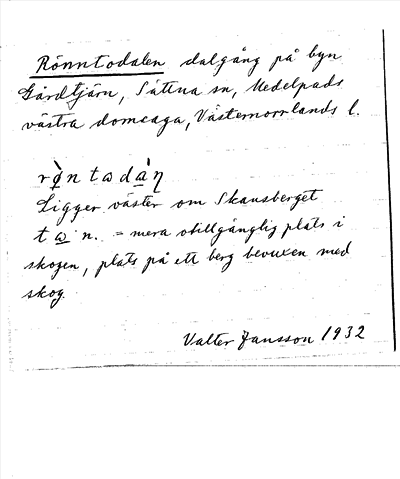 Rönntodalen dalgång på byn
Gårdtjärn, Sättna sn, Medelpads
västra domsaga, Västernorrlands l.
rø̀ntɷdàn̩
Ligger väster om Skansberget
tɷ n. = mera otillgänglig plats i
skogen, plats på ett berg bevuxen med
skog.
Valter Jansson 1932